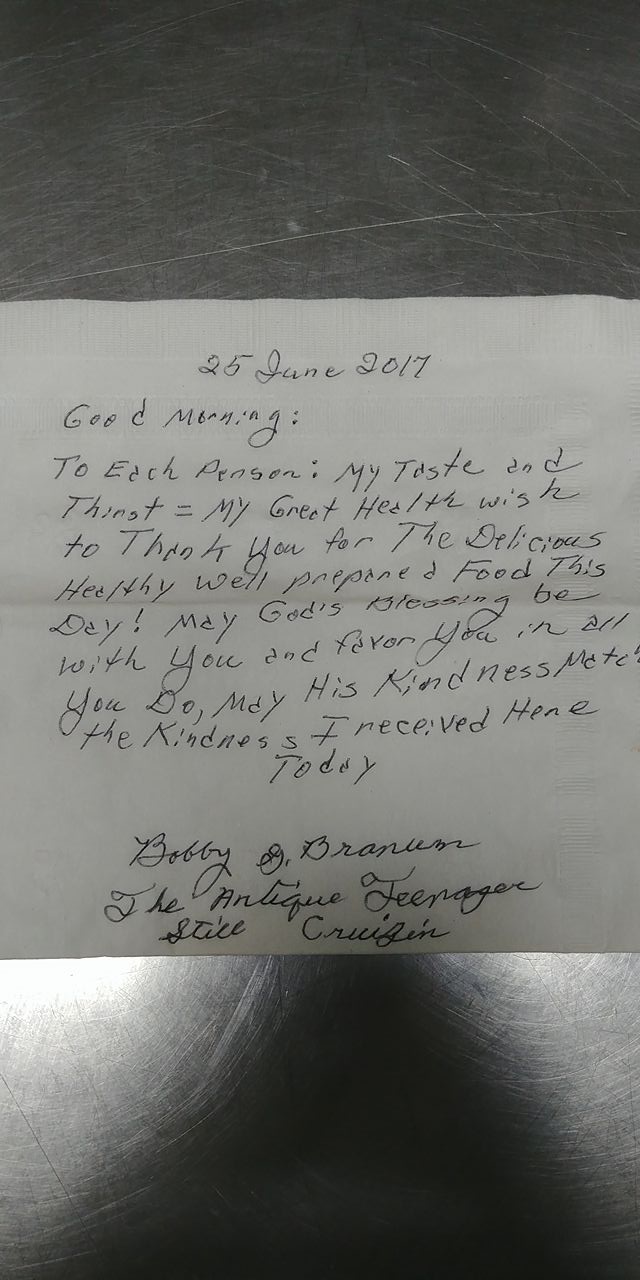 25 June 2017
Good Morning:
To Each Person: My Taste and
Thirst = My Great Health wish
to Thank You for The Delicious
Healthy Well prepared Food This
Day! May God's Blessing be
with You and favor You in all
You Do, May His Kindness Match
the Kindness I received Here
Today
Bobby G. Branum
The Antique Teenager
Still Cruizin